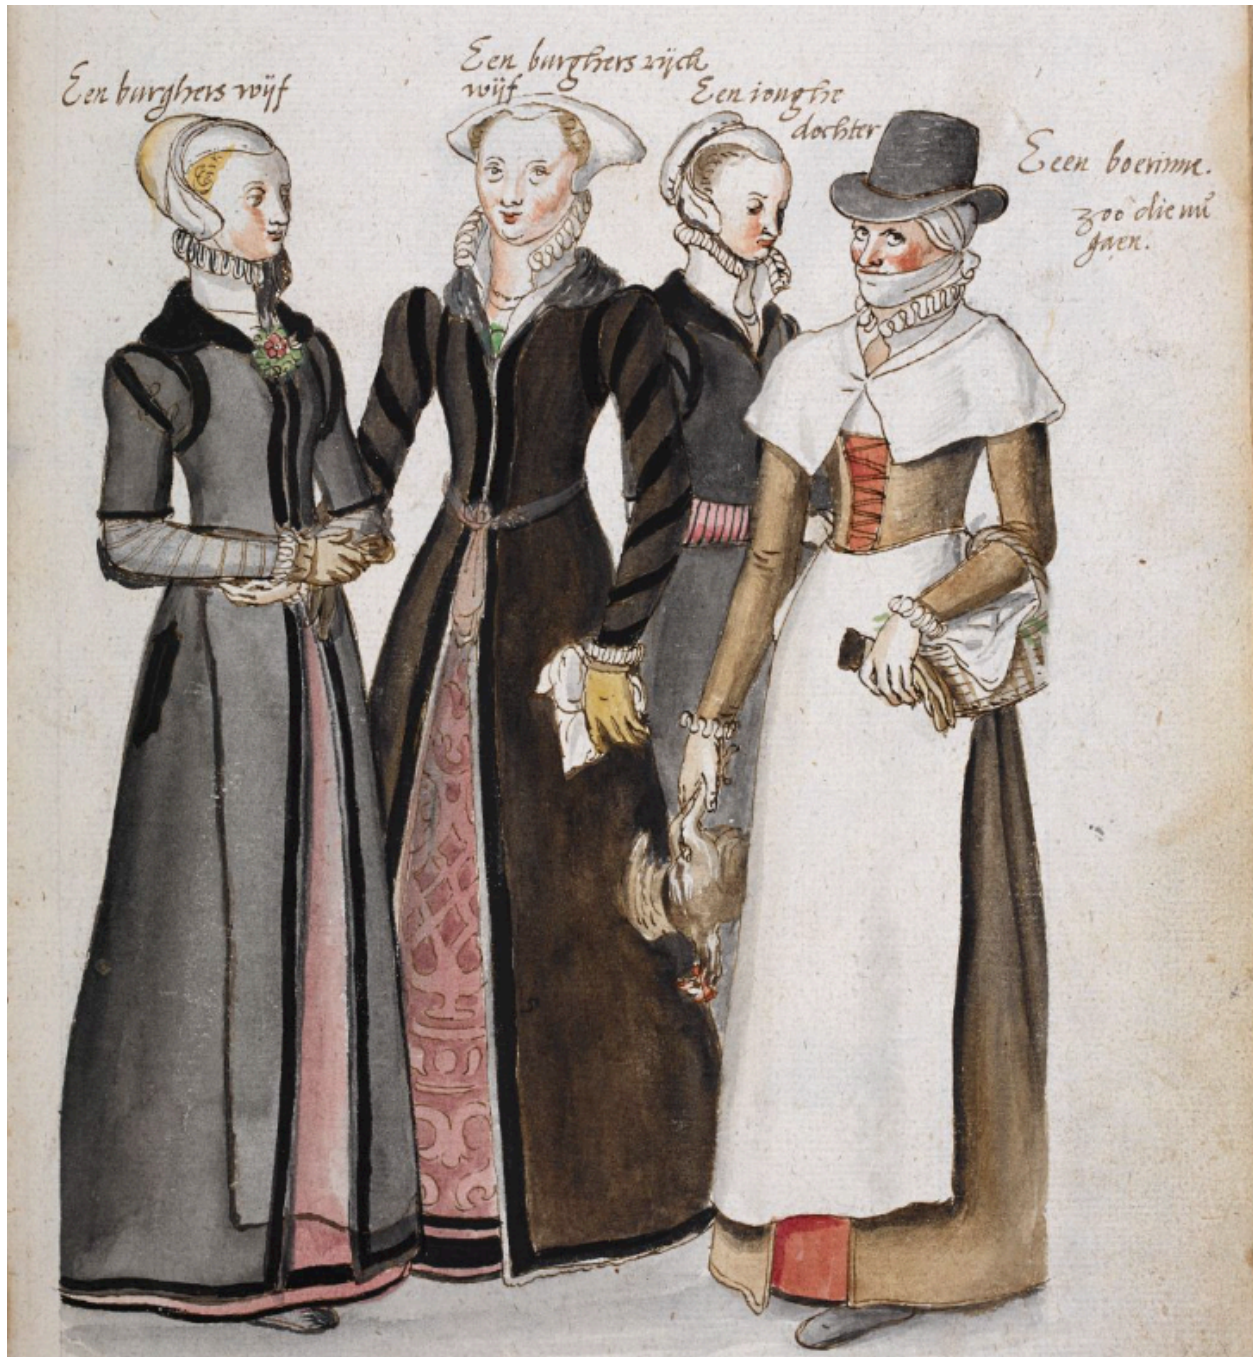 Een burghers wijf
Een burghers rijck
wijf
Een ionghe
dochter
Eeen boerinne.
zoo die nu
gaen.